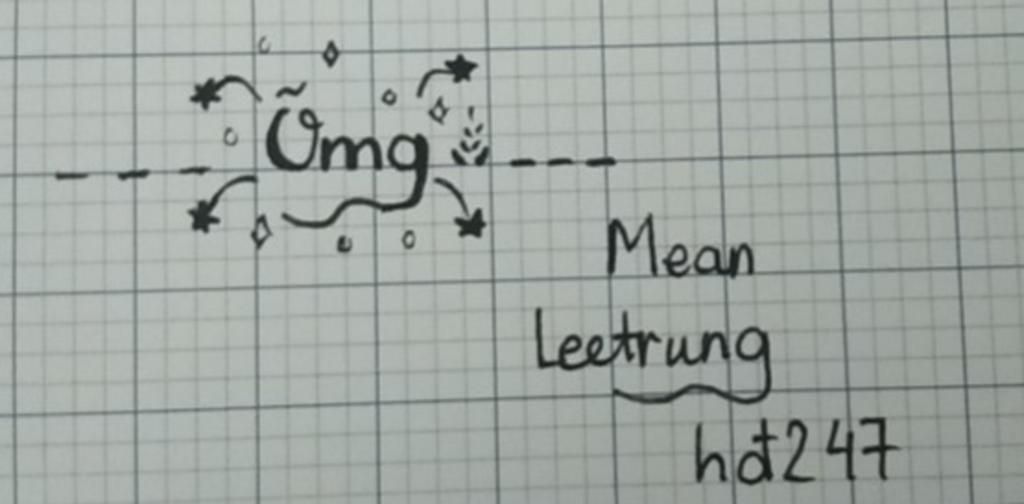 Õmg
Mean
Leetrung
hdt247